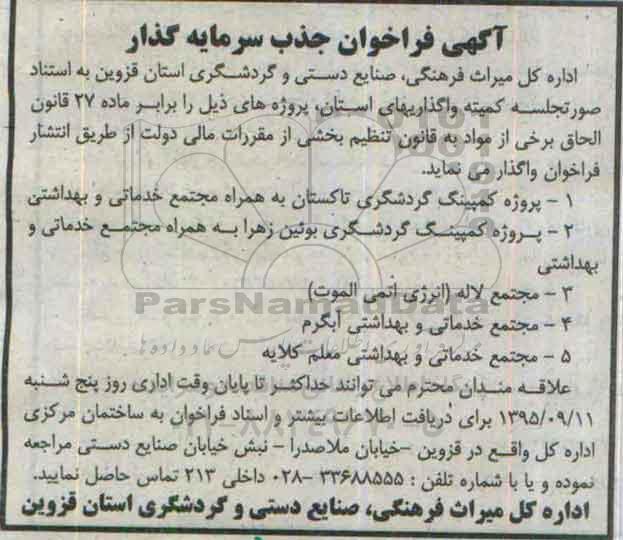 آگهی فراخوان جذب سرمایه گذار
اداره کل میراث فرهنگی، صنایع دستی و گردشگری استان قزوین به استناد
صورتجلسه کمیته واگذاریهای استان، پروژه های ذیل را برابر ماده ۲۷ قانون
الحاق برخی از مواد به قانون تنظیم بخشی از مقررات مالی دولت از طریق انتشار
فراخوان واگذار می نماید.
۱ – پروژه کمپینگ گردشگری تاکستان به همراه مجتمع خدماتی و بهداشتی
۲ – پروژه کمپینگ گردشگری بوئین زهرا به همراه مجتمع خدماتی و
بهداشتی
۳ – مجتمع لاله (انرژی اتمی الموت)
ParsNamadData
۴ – مجتمع خدماتی و بهداشتی آبگرم
۵ – مجتمع خدماتی و بهداشتی معلم کلایه
علاقه مندان محترم می توانند حداکثر تا پایان وقت اداری روز پنج شنبه
۱۳۹۵/۰۹/۱۱ برای دریافت اطلاعات بیشتر و اسناد فراخوان به ساختمان مرکزی
اداره کل واقع در قزوین –خیابان ملاصدرا – نبش خیابان صنایع دستی مراجعه
نموده و یا با شماره تلفن : ۳۳۶۸۸۵۵۵ –۰۲۸ داخلی ۲۱۳ تماس حاصل نمایید.
اداره کل میراث فرهنگی، صنایع دستی و گردشگری استان قزوین